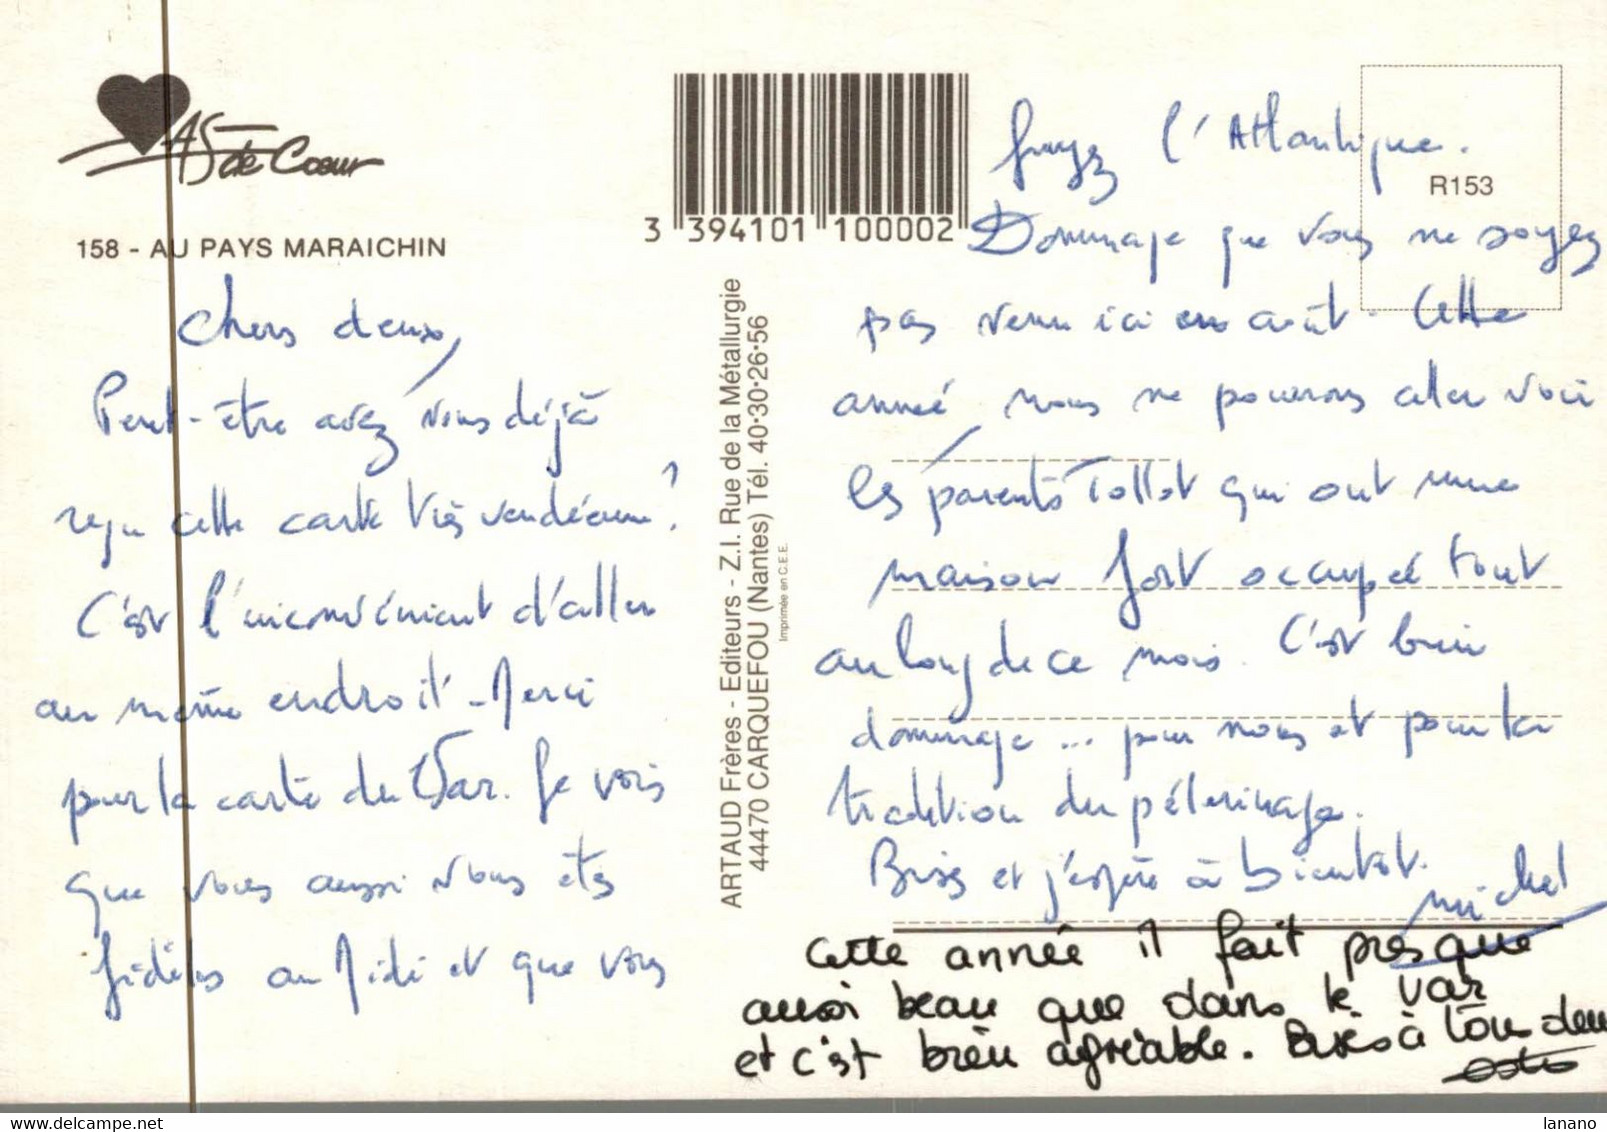 AS de Coeur
158 - AU PAYS MARAICHIN
Chers deux,
Peut-être avez vous déjà
reçu cette carte très vendéenne ?
C'est l'inconvénient d'aller
au même endroit - Merci
pour la carte du Var. Je vois
que vous aussi vous êtes
fidèles au Midi et que vous
3 394101 100002
ARTAUD Frères - Editeurs - Z.I. Rue de la Métallurgie
44470 CARQUEFOU (Nantes) Tél. 40·30·26·56
Imprimée en C.E.E.
R153
fuyez l'Atlantique.
Dommage que vous ne soyez
pas venu ici en août. Cette
année nous ne pouvons aller voir
les parents Tollot qui ont une
maison fort occupée tout
au long de ce mois. C'est bien
dommage ... pour nous et pour la
tradition du pélerinage.
Bises et j'espère à bientôt.
Michel
Cette année il fait presque
aussi beau que dans le Var
et c'est bien agréable. Bises à tous deux
lanano